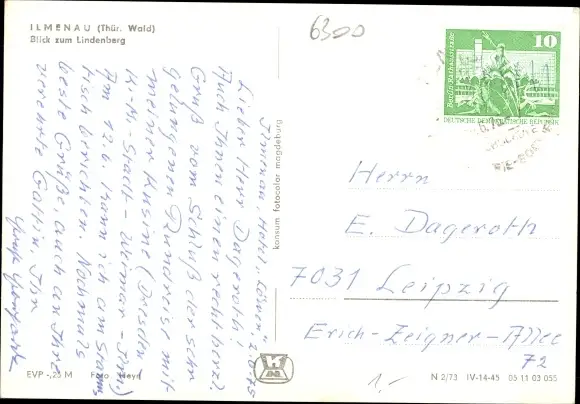 ILMENAU (Thür. Wald)
Blick zum Lindenberg
6300
10
Berlin, Rathausstraße
DEUTSCHE DEMOKRATISCHE REPUBLIK
Ilmenau, Hotel „Löwen" 2.6.75
Lieber Herr Dageroth!
Auch Ihnen einen recht herzl.
Gruß vom Schluß der sehr
gelungenen Rundreise mit
meiner Kusine (Dresden-
K.-M.-Stadt-Weimar-Ilm.)
Am 12.6. kann ich am Stamm-
tisch berichten. Nochmals
beste Grüße, auch an Ihre
verehrte Gattin, Ihr
konsum fotocolor magdeburg
Herrn
E. Dageroth
7031 Leipzig
Erich-Zeigner-Allee
72
EVP -,25 M Foto: Heyd
1,-
N 2/73 IV-14-45 05 11 03 055